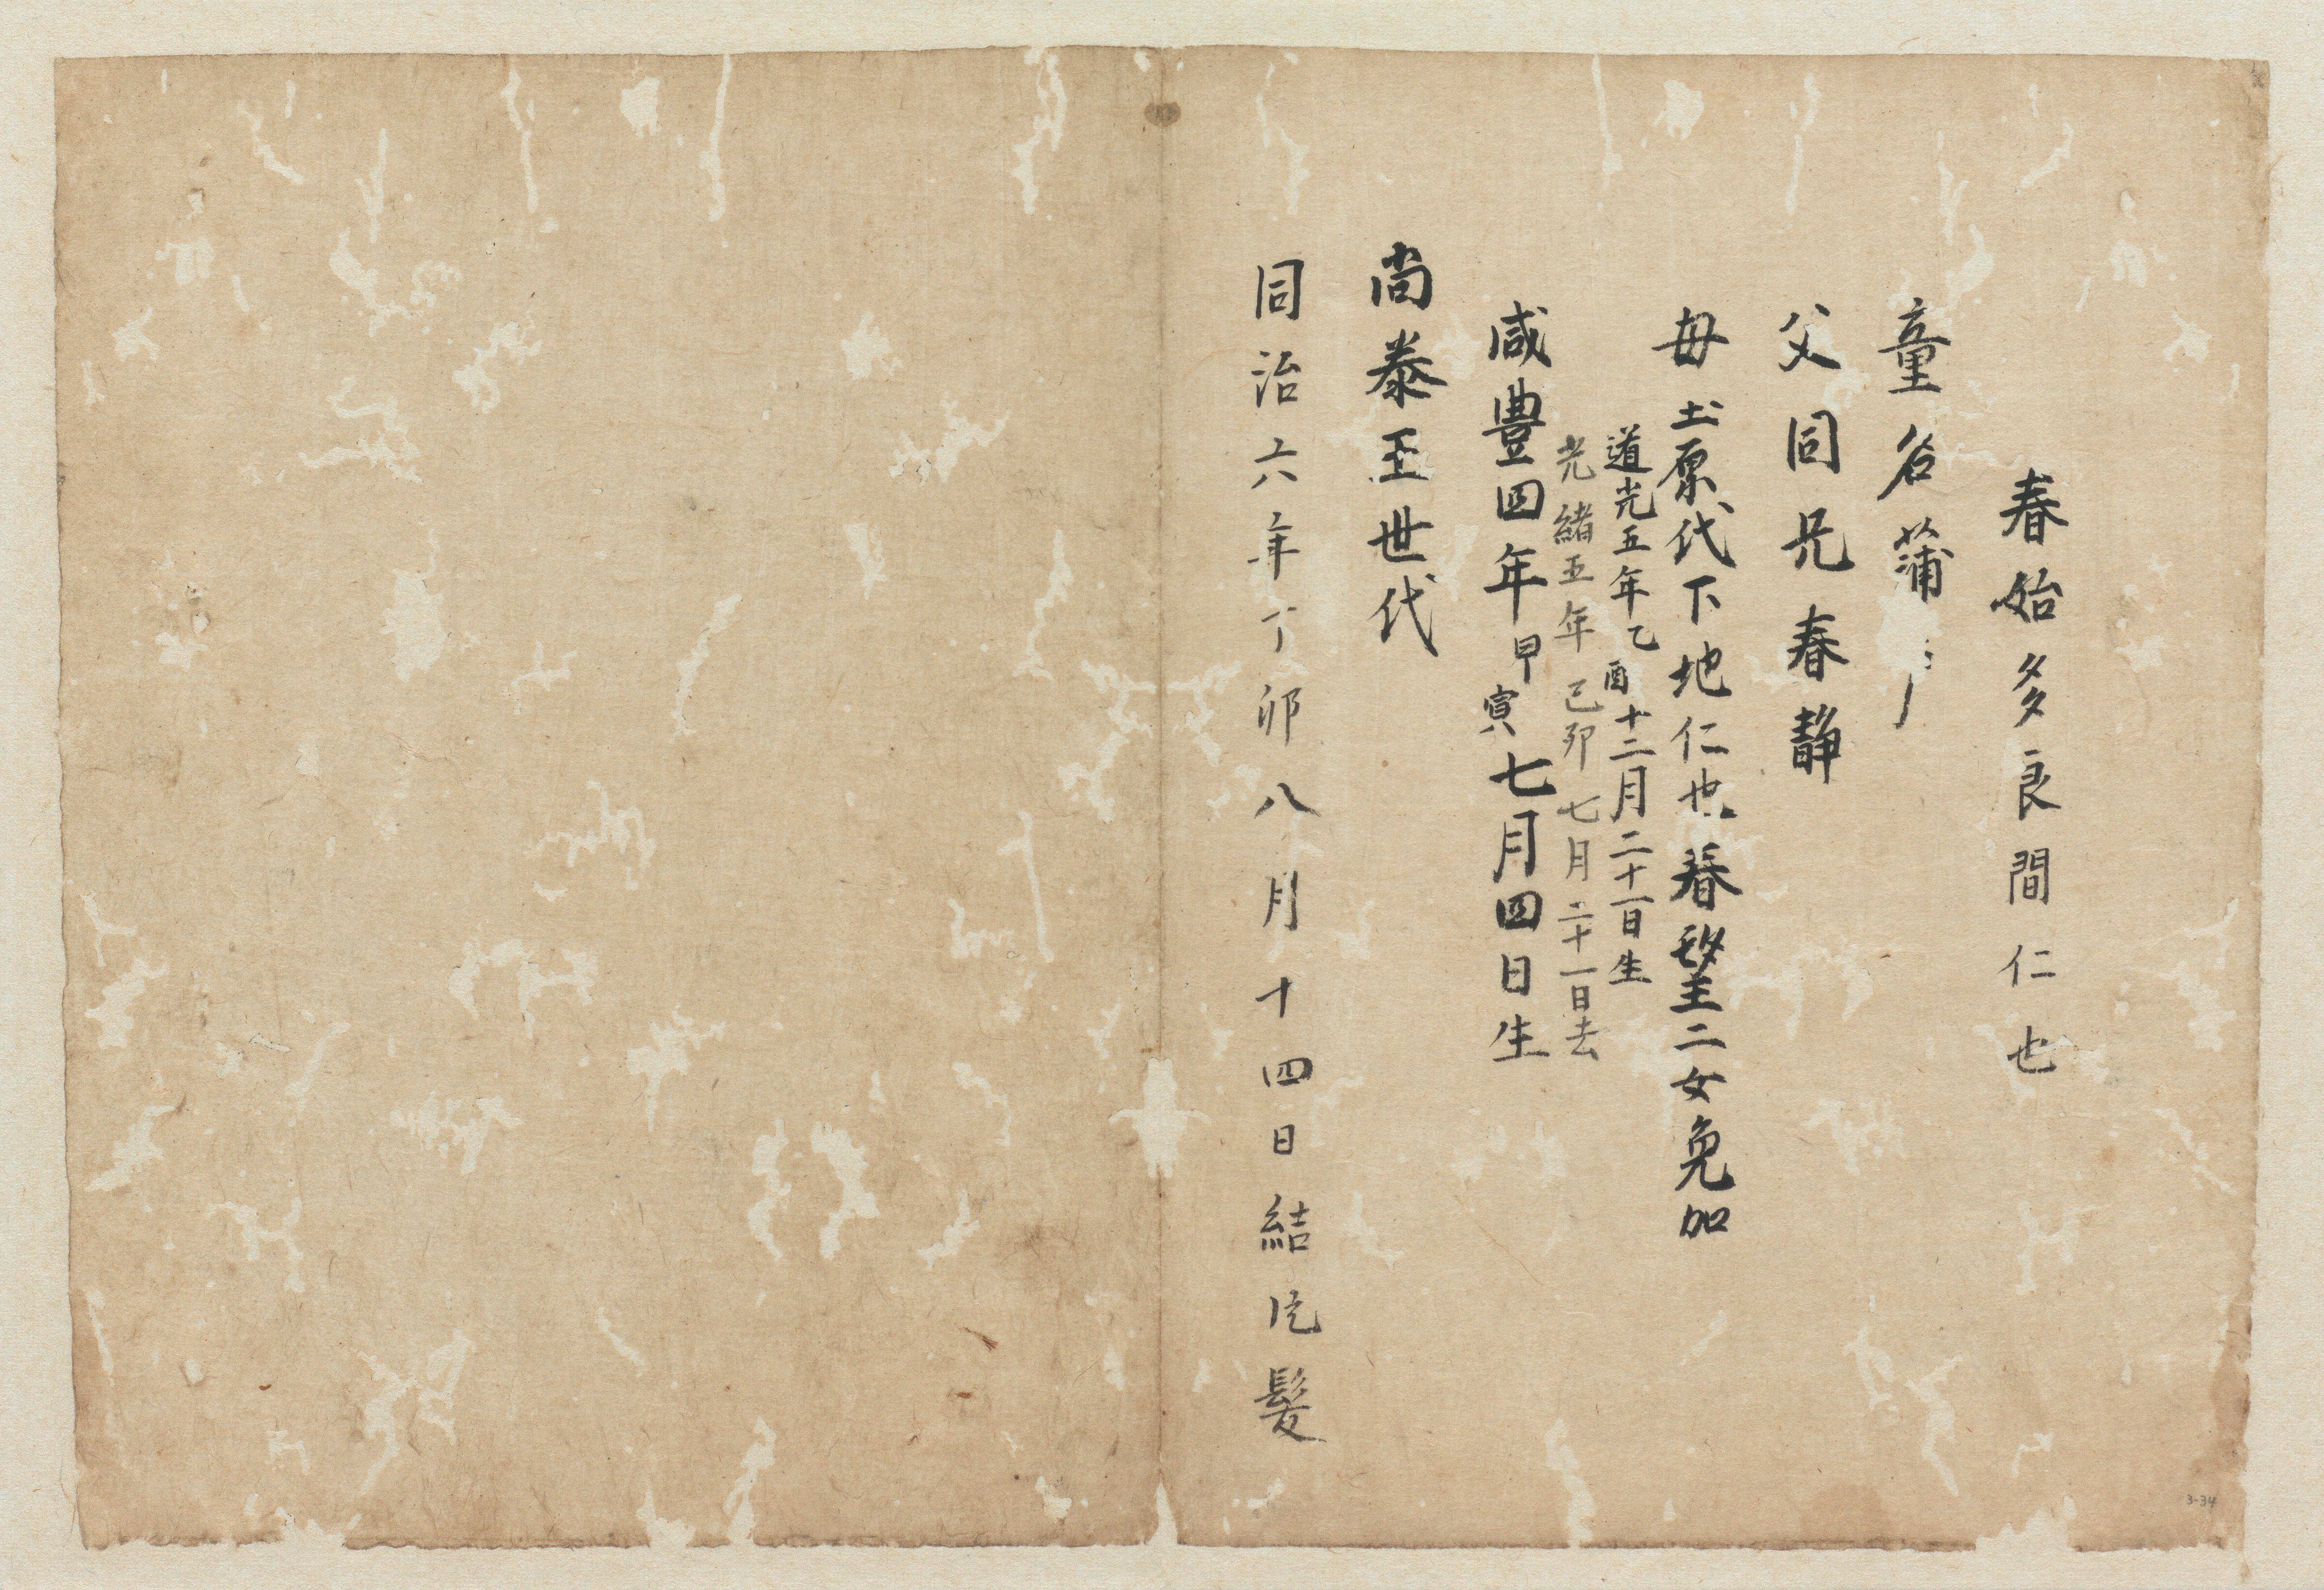 春始多良間仁也
童名蒲
父同兄春静
母土原代下地仁也春望二女免加
道光五年乙酉十二月二十一日生
光緒五年己卯七月二十一日去
咸豊四年甲寅七月四日生
尚泰王世代
同治六年丁卯八月十四日結片髪
3-34